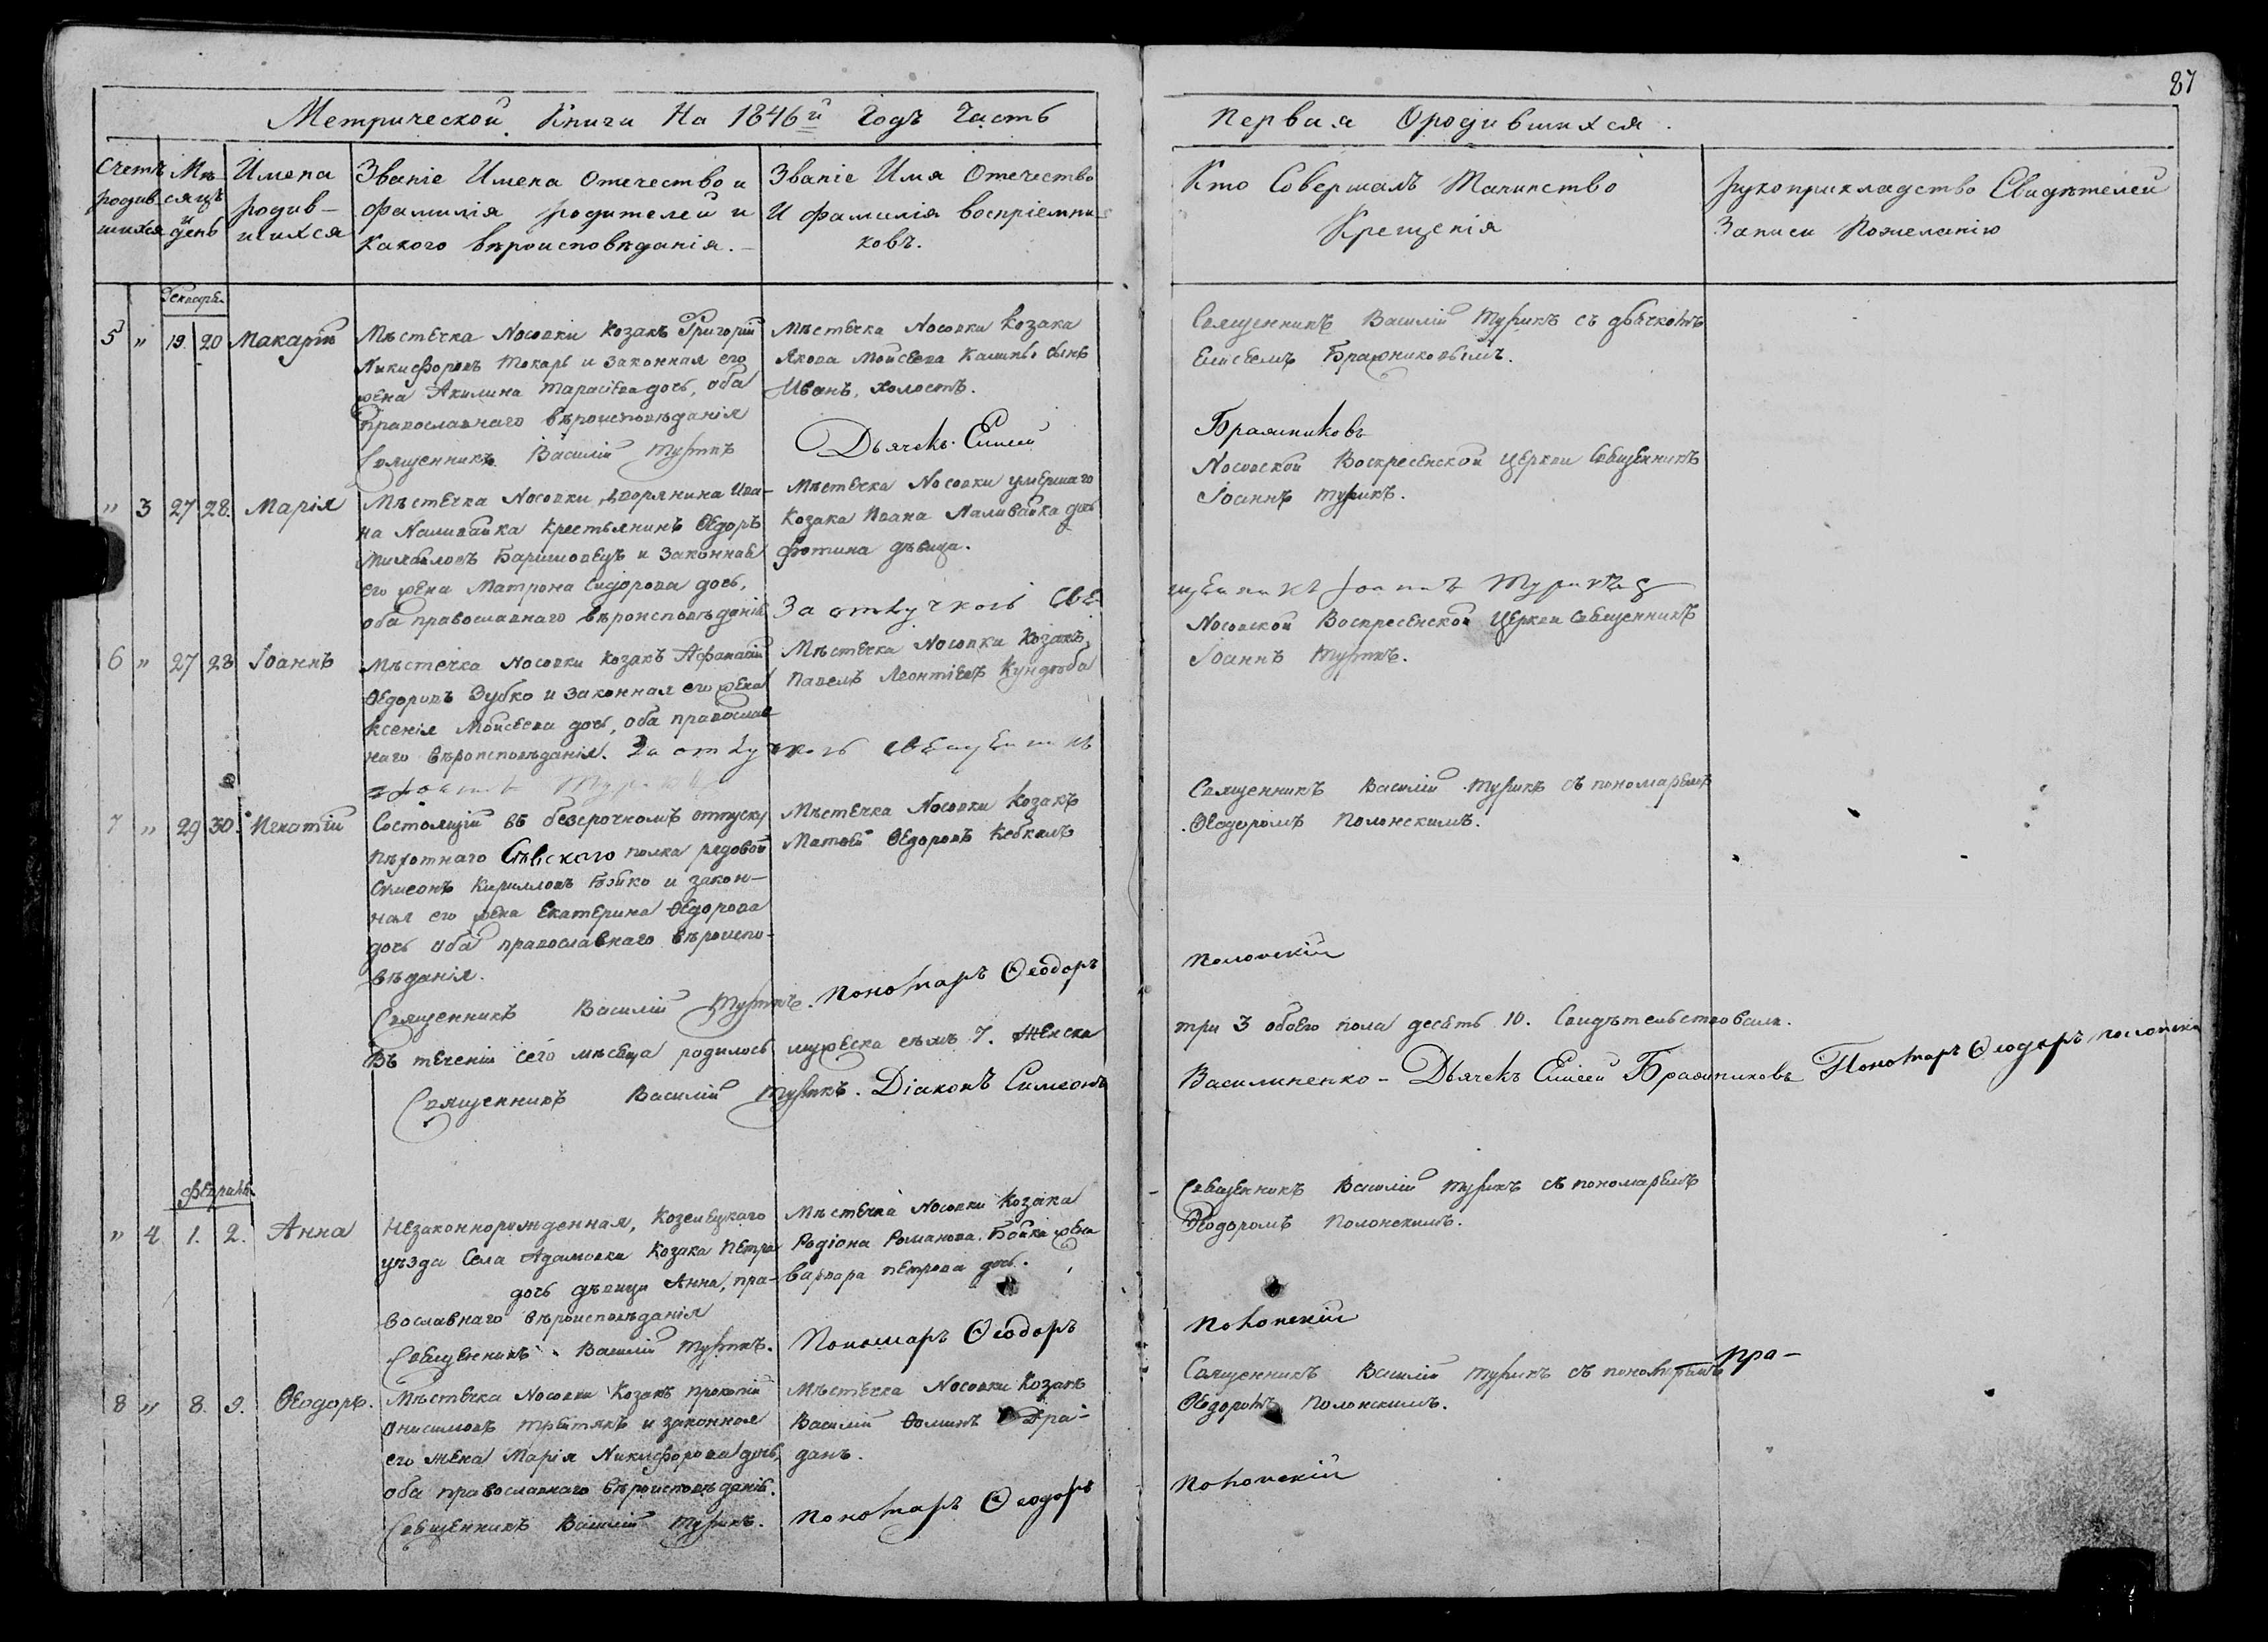 87
Метрической Книги На 1846й Годъ Часть
Первая О родившихся.
Счетъ родившихся
Мѣсяцъ и день
Имена родившихся
Званіе Имена Отечество и
фамилія родителей и
какого вѣроисповѣданія.
Званіе Имя Отечество
И фамилія воспріемни-
ковъ.
Кто Совершалъ Таинство
Крещенія
рукоприкладство Свидѣтелей
Записи По желанію
5 " 19 20 Макарій
Мѣстечка Носовки козакъ Григорій
Никифоровъ Токарь и законная его
жена Акилина Тарасіева дочь, оба
православнаго вѣроисповѣданія
Священникъ Василій Турикъ
Мѣстечка Носовки козака
Якова Мойсеева сынъ
Иванъ, холостъ.
Дьячекъ Елисей
Священникъ Василій Турикъ съ дьячкомъ
Елисеемъ Бражниковымъ.
Бражниковъ
" 3 27 28. Марія
Мѣстечка Носовки дворянина Ива-
на Наливайка крестьянинъ Ѳедоръ
Михайловъ и законная
его жена Матрона Сидорова дочь,
оба православнаго вѣроисповѣданія
Мѣстечка Носовки умершаго
козака Ивана Наливайка дочь
Фотина дѣвица.
За отлучкою Свя-
Носовской Воскресенской Церкви Священникъ
Іоаннъ Турикъ.
щенникъ Іоаннъ Турикъ
6 " 27 28 Іоаннъ
Мѣстечка Носовки козакъ Афанасій
Ѳедоровъ Зубко и законная его жена
Ксенія Мойсеева дочь, оба православ
наго вѣроисповѣданія. За отлучкою священникъ
Іоаннъ Турикъ
Мѣстечка Носовки Козакъ
Павелъ Леонтіевъ Кундюба
Носовской Воскресенской Церкви Священникъ
Іоаннъ Турикъ.
7 " 29 30. Игнатій
Состоящій въ безсрочномъ отпуску
пѣхотнаго Сѣвскаго полка рядовой
Симеонъ Кирилловъ Бойко и закон-
ная его жена Екатерина Ѳедорова
дочь оба православнаго вѣроиспо-
вѣданія.
Священникъ Василій Турикъ.
Мѣстечка Носовки козакъ
Матѳей Ѳедоровъ
Пономарь Ѳеодоръ
Священникъ Василій Турикъ съ пономаремъ
Ѳеодоромъ Полонскимъ.
Полонскій
Въ теченіи сего мѣсяца родилось мужеска семъ 7. Женска
три 3 обоего пола десять 10. Свидѣтельствовали.
Священникъ Василій Турикъ. Діаконъ Симеонъ
Василиненко - Дьячекъ Елисей Бражниковъ Пономарь Ѳеодоръ Полонскій
Февраль
" 4 1. 2. Анна
Незаконнорожденная, Козелецкаго
уѣзда Села Адамовки козака Петра
дочь дѣвици Анна, пра-
вославнаго вѣроисповѣданія
Священникъ Василій Турикъ.
Мѣстечка Носовки козака
Родіона Романова Бойка жена
Варвара Петрова дочь.
Пономарь Ѳеодоръ
Священникъ Василій Турикъ съ пономаремъ
Ѳеодоромъ Полонскимъ.
Полонскій
8 " 8. 9. Ѳеодоръ.
Мѣстечка Носовки Козакъ Прокопій
Онисимовъ Третякъ и законная
его жена Марія Никифорова дочь,
оба православнаго вѣроисповѣданія.
Священникъ Василій Турикъ.
Мѣстечка Носовки Козакъ
Василій Ѳоминъ Дра-
ганъ.
Пономарь Ѳеодоръ
Священникъ Василій Турикъ съ пономаремъ
Ѳедоромъ Полонскимъ.
Полонскій